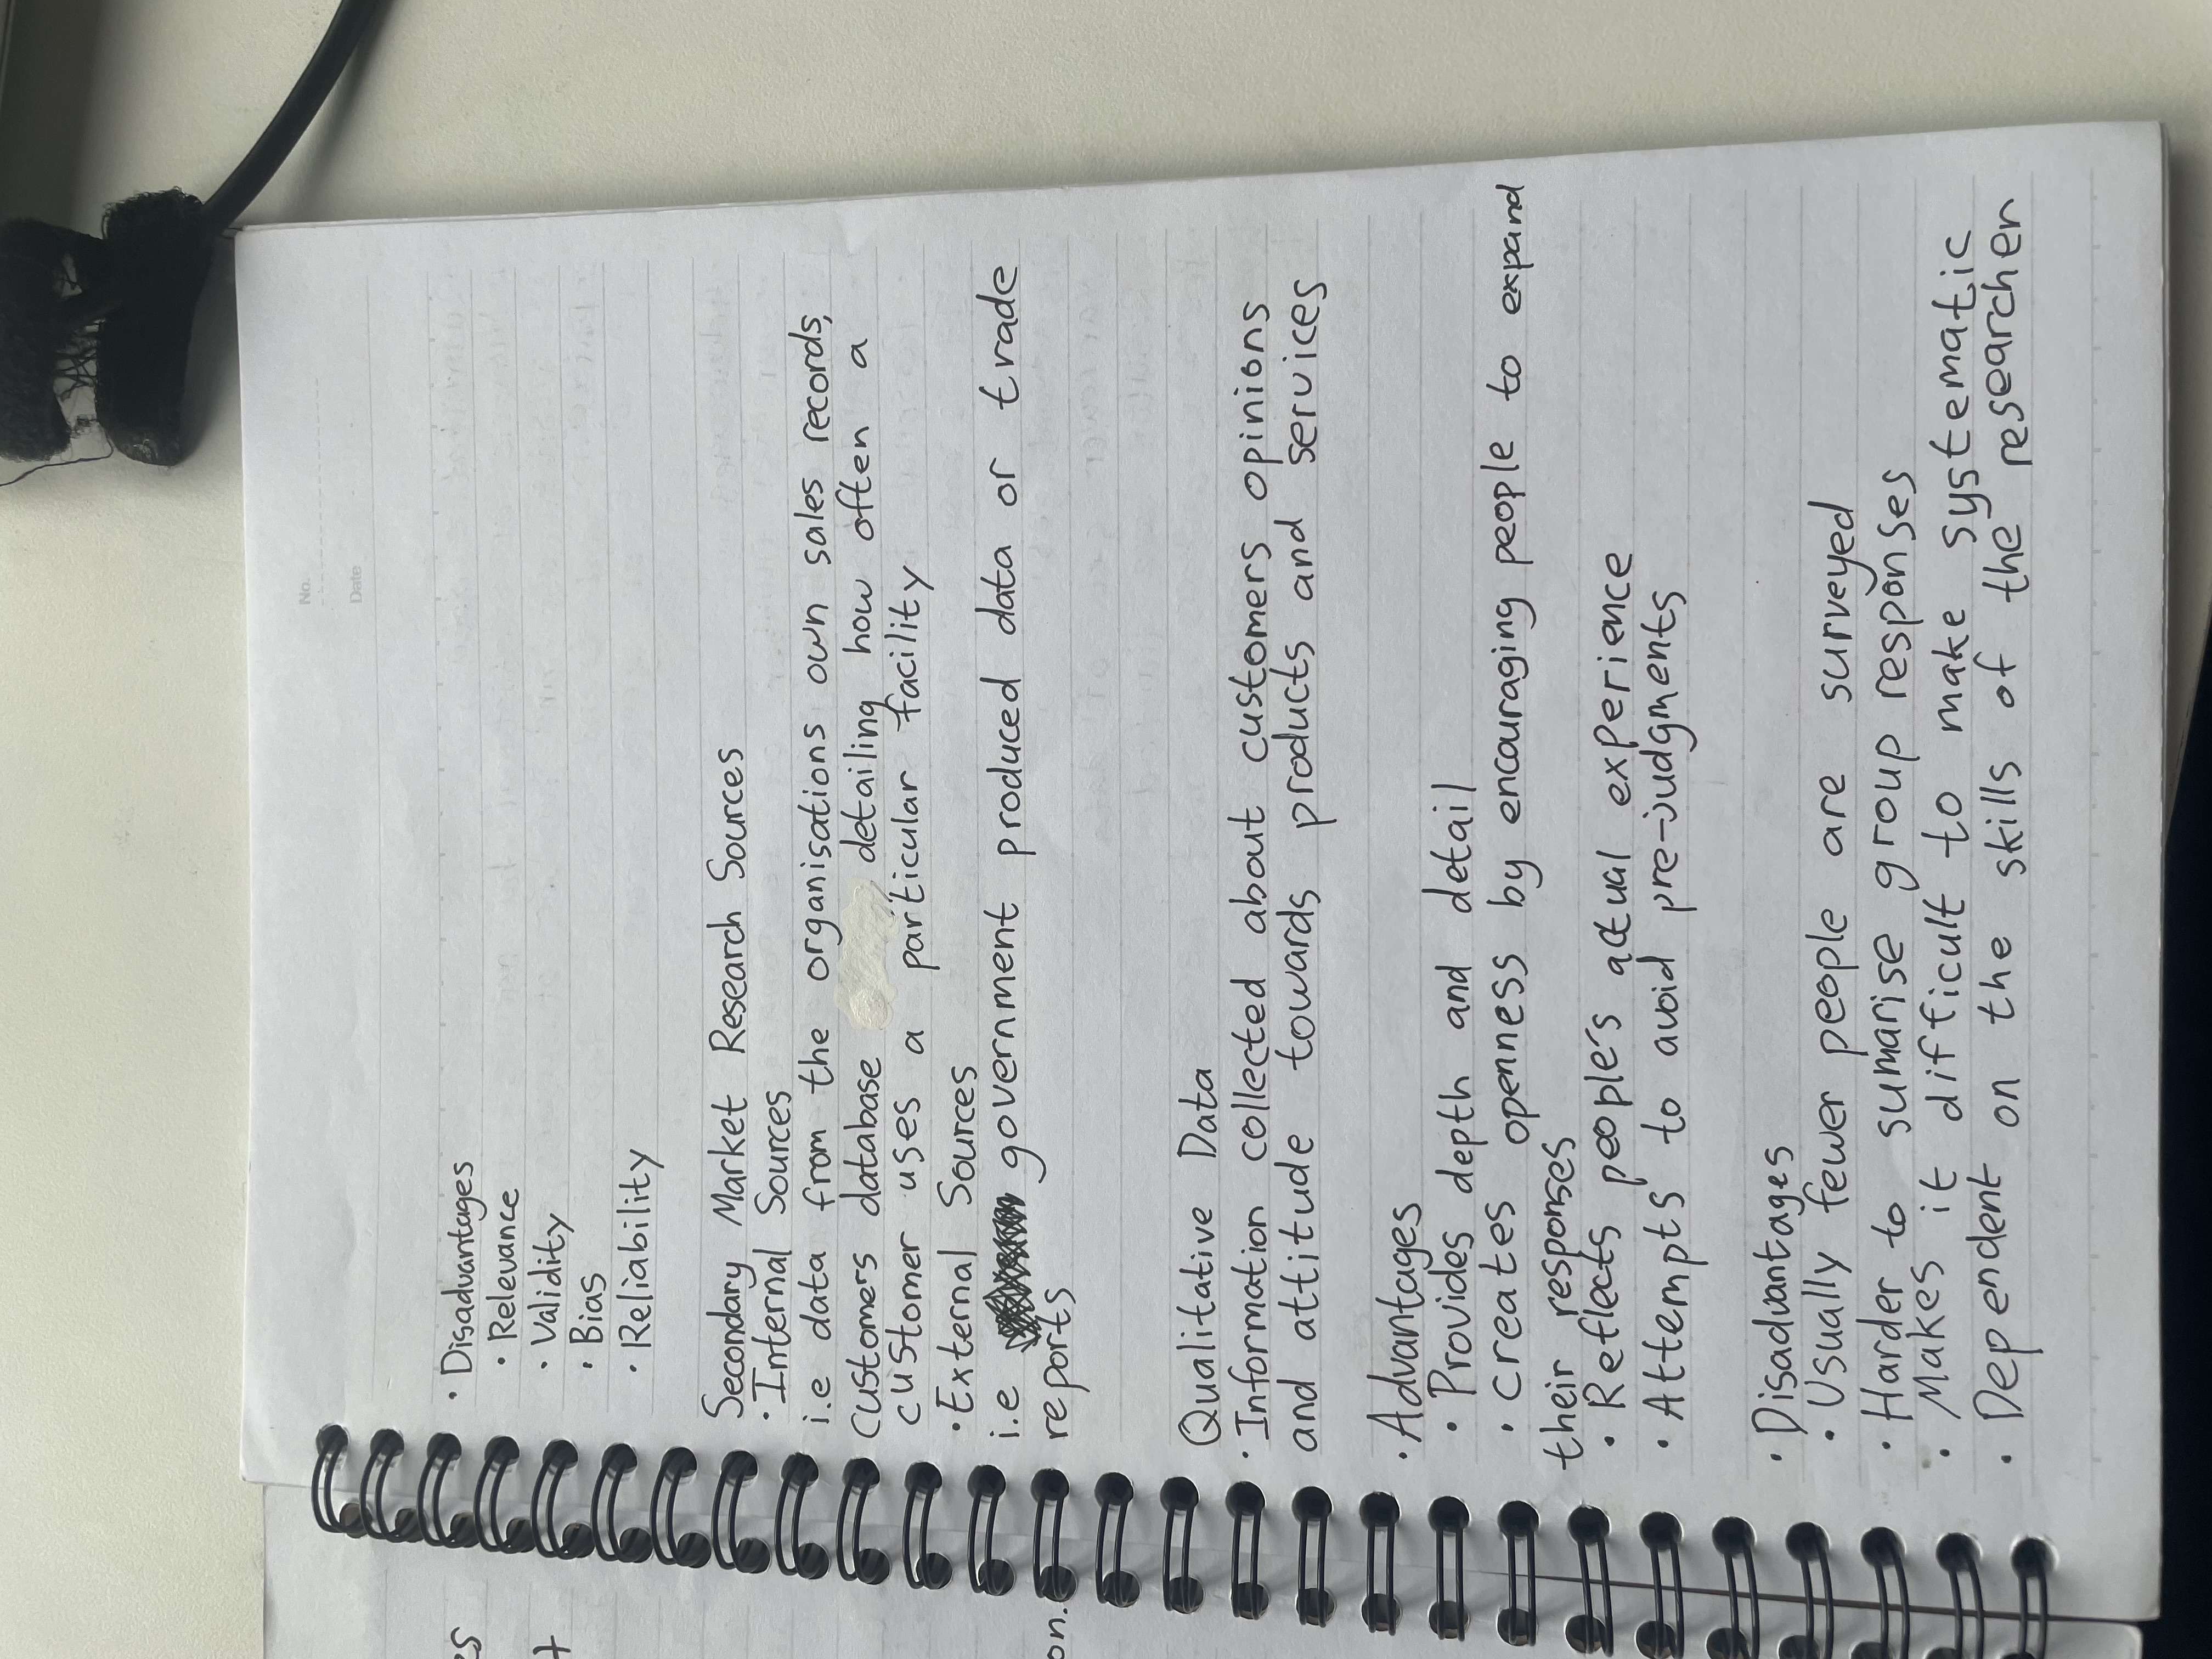 No.
Date
· Disadvantages
· Relevance
· Validity
· Bias
· Reliability
Secondary Market Research Sources
· Internal Sources
i.e data from the organisations own sales records,
customers database detailing how often a
customer uses a particular facility
· External Sources
i.e government produced data or trade
reports
Qualitative Data
· Information collected about customers opinions
and attitude towards products and services
· Advantages
· Provides depth and detail
· Creates openness by encouraging people to expand
their responses
· Reflects people's actual experience
· Attempts to avoid pre-judgments
· Disadvantages
· Usually fewer people are surveyed
· Harder to sumarise group responses
· Makes it difficult to make systematic
· Dependent on the skills of the researcher
es
t
on.